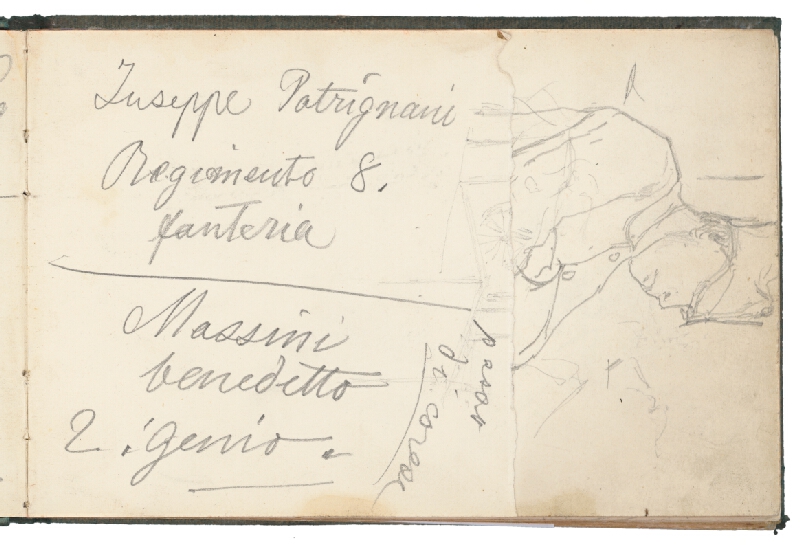 Iuseppe Patrignani
Regimento 8.
fanteria
Massini
benedetto
2. genio.
passo
di corse